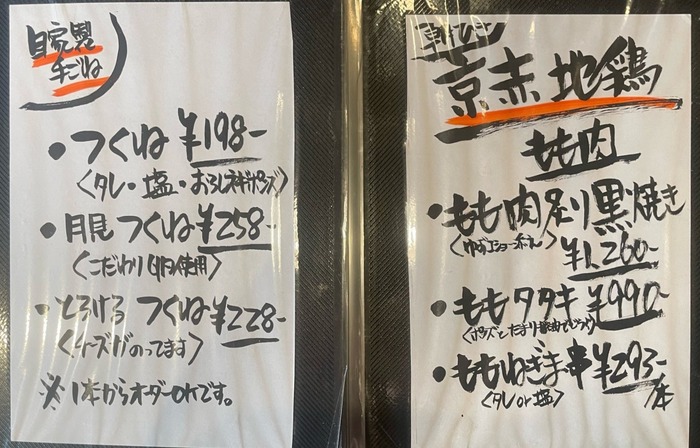 自家製
手ごね
・つくね ¥198-
〈タレ・塩・おろしネギポンズ〉
・月見つくね ¥258-
〈こだわり卵使用〉
・とろける つくね ¥228-
〈チーズがのってます〉
※1本からオーダーOKです。
朝びき
京赤地鶏
もも肉
・もも肉炙り黒焼き
¥1,260-
・ももタタキ ¥990-
〈ポンズとたまり醤油でどうぞ〉
・ももねぎま串 ¥293-
〈タレor塩〉
/本